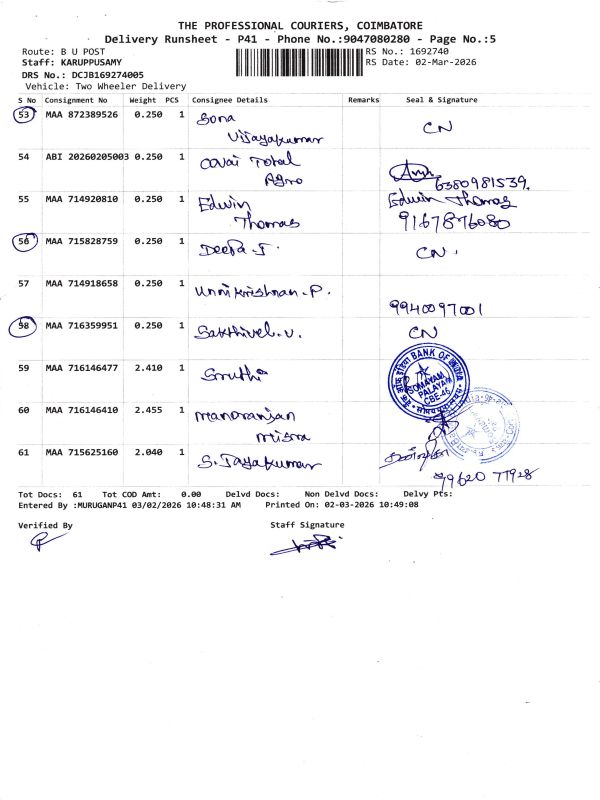 THE PROFESSIONAL COURIERS, COIMBATORE
Delivery Runsheet - P41 - Phone No.:9047080280 - Page No.:5
Route: B U POST RS No.: 1692740
Staff: KARUPPUSAMY RS Date: 02-Mar-2026
DRS No.: DCJB169274005
Vehicle: Two Wheeler Delivery
S No Consignment No Weight PCS Consignee Details Remarks Seal & Signature
53 MAA 872389526 0.250 1 Sona
Vijayakumar CN
54 ABI 20260205003 0.250 1 Covai Total
Agro
6380981539.
55 MAA 714920810 0.250 1 Edwin Edwin Thomas
Thomas 9167876080
56 MAA 715828759 0.250 1 Deepa-J. CN.
57 MAA 714918658 0.250 1 Unnikrishnan-P.
9940097001
58 MAA 716359951 0.250 1 Sakthivel.v. CN
59 MAA 716146477 2.410 1 Sruthi
BANK OF INDIA
SOMAYAM
PALAYAM
CBE-46
60 MAA 716146410 2.455 1 Manoranjan
Misra
61 MAA 715625160 2.040 1 S. Jayakumar
99620 77928
Tot Docs: 61 Tot COD Amt: 0.00 Delvd Docs: Non Delvd Docs: Delvy Pts:
Entered By :MURUGANP41 03/02/2026 10:48:31 AM Printed On: 02-03-2026 10:49:08
Verified By Staff Signature